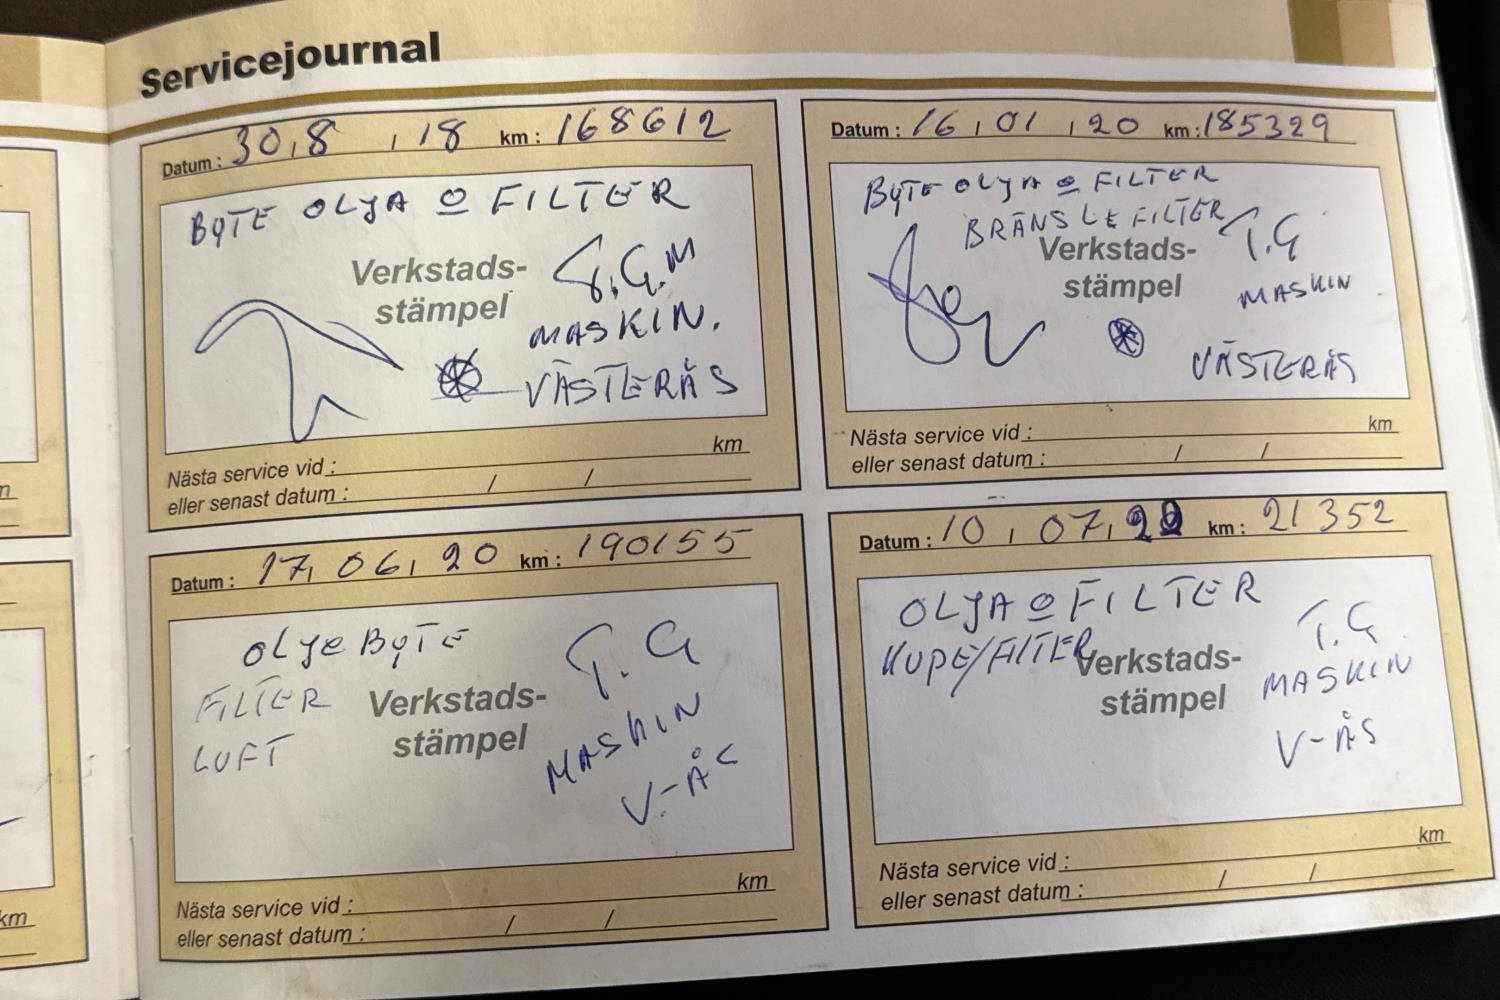 Servicejournal
Datum : 30,8 , 18 km : 168612
BYTE OLJA O FILTER
Verkstads-
stämpel
T.G.M
MASKIN.
VÄSTERÅS
Nästa service vid : km
eller senast datum : / /
Datum : 16, 01, 20 km : 185329
BYTE OLJA O FILTER
BRÄNSLEFILTER
Verkstads-
stämpel
T.G
MASKIN
VÄSTERÅS
Nästa service vid : km
eller senast datum : / /
Datum : 17, 06, 20 km : 190155
OLJEBYTE
FILTER
LUFT
Verkstads-
stämpel
T.G
MASKIN
V-ÅS
Nästa service vid : km
eller senast datum : / /
Datum : 10, 07, km : 21352
OLJA O FILTER
KUPE/FILTER
Verkstads-
stämpel
T.G
MASKIN
V-ÅS
Nästa service vid : km
eller senast datum : / /
km